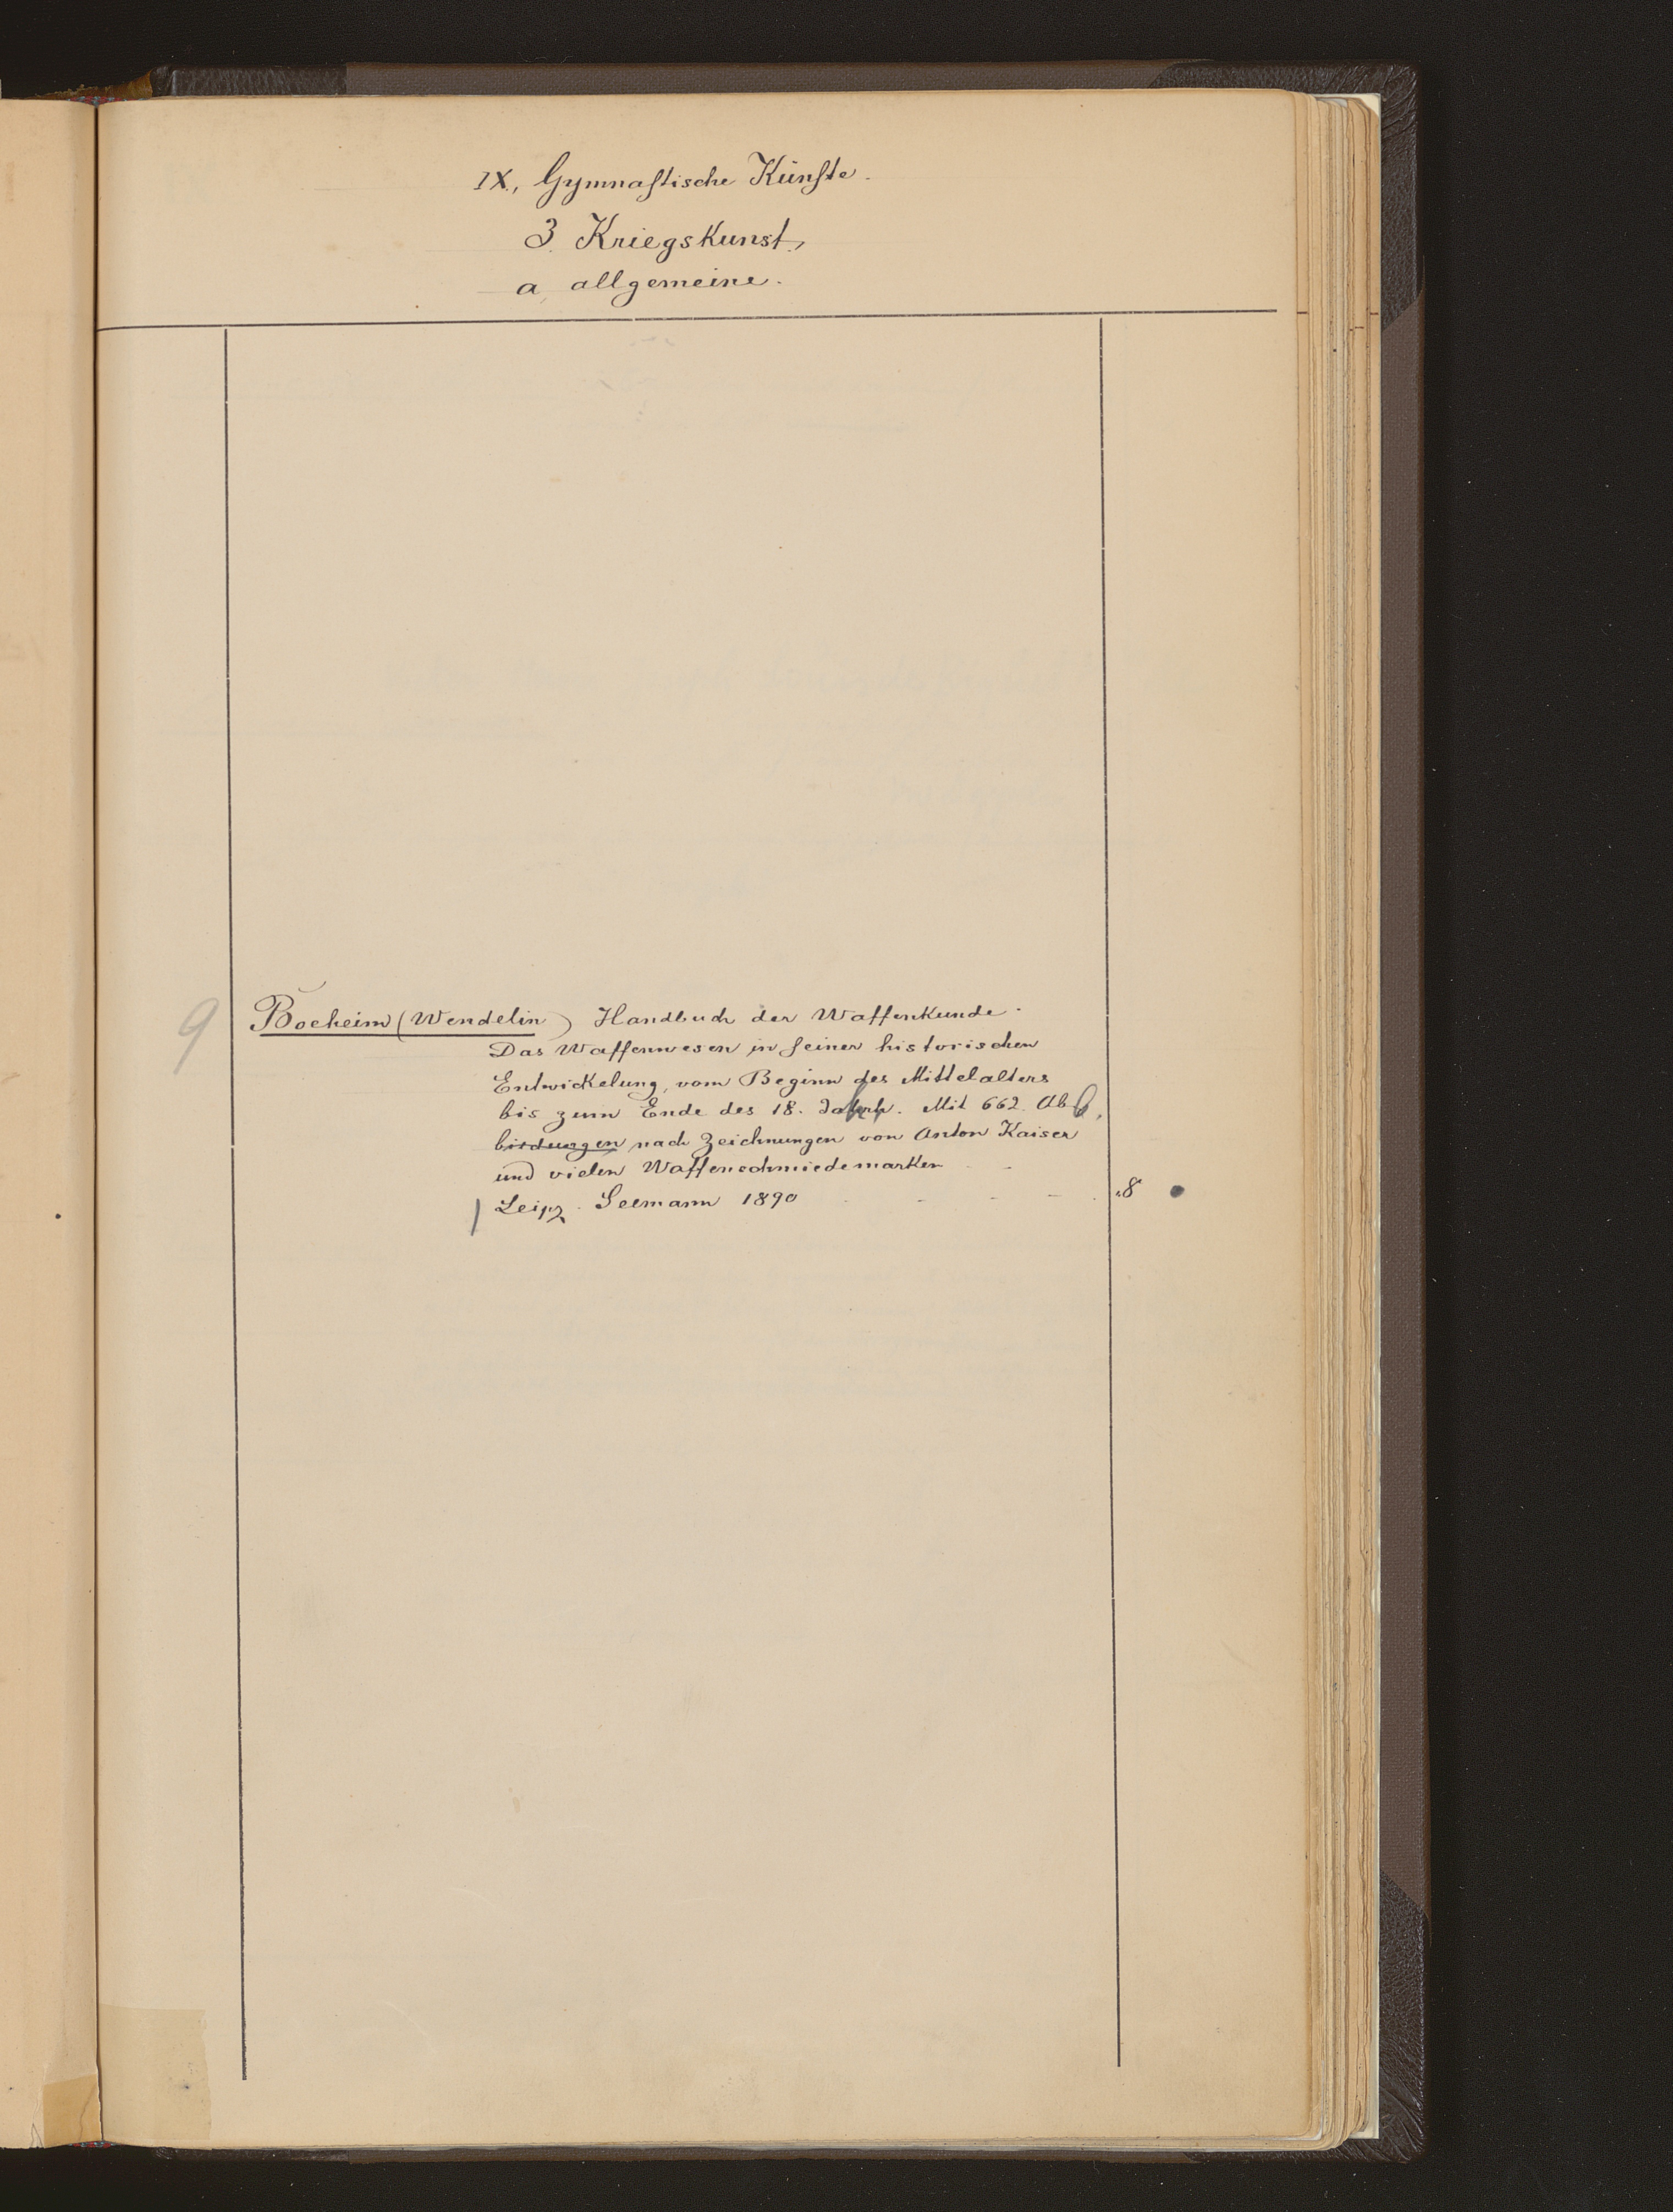 IX., Gymnaſtische Künſte.
3. Kriegskunst.
a, allgemeine.
9 Boeheim (Wendelin) Handbuch der Waffenkunde.
Das Waffenwesen in ſeiner historischen
Entwickelung, vom Beginn des Mittelalters
bis zum Ende des 18. Jahrh. Mit 662. Abb.
bildungen nach Zeichnungen von Anton Kaiser
und vielen Waffenschmiedemarken
Leipz. Seemann 1890 - - - - 8